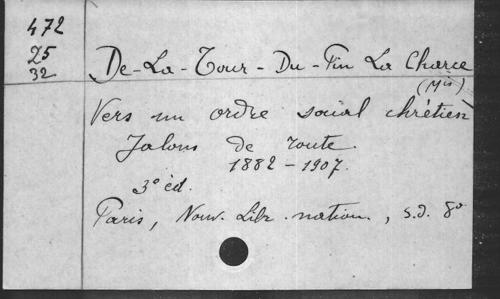 472
25
32
De-La-Tour-Du-Pin La Charce
(Mis)
Vers un ordre social chrétien
Jalons de route.
1882-1907.
3e éd.
Paris, Nouv. Libr. nation., s.d. 8o